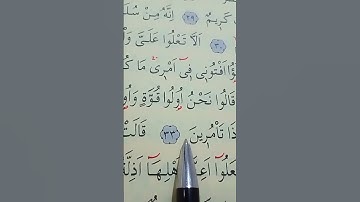 كَر۪يمٌ ﴿٢٩﴾ اِنَّهُ مِنْ سُلَ
﴿٣٠﴾ اَلَّا تَعْلُوا عَلَىَّ وَأْ
ؤُا اَفْتُون۪ى ف۪ٓى اَمْر۪ى مَا كُ
قَالُوا نَحْنُ اُو۬لُوا قُوَّةٍ وَاُو
ذَا تَأْمُر۪ينَ ﴿٣٣﴾ قَالَتْ
عَلُٓوا اَعِ هْلِهَٓا اَذِلَّةً